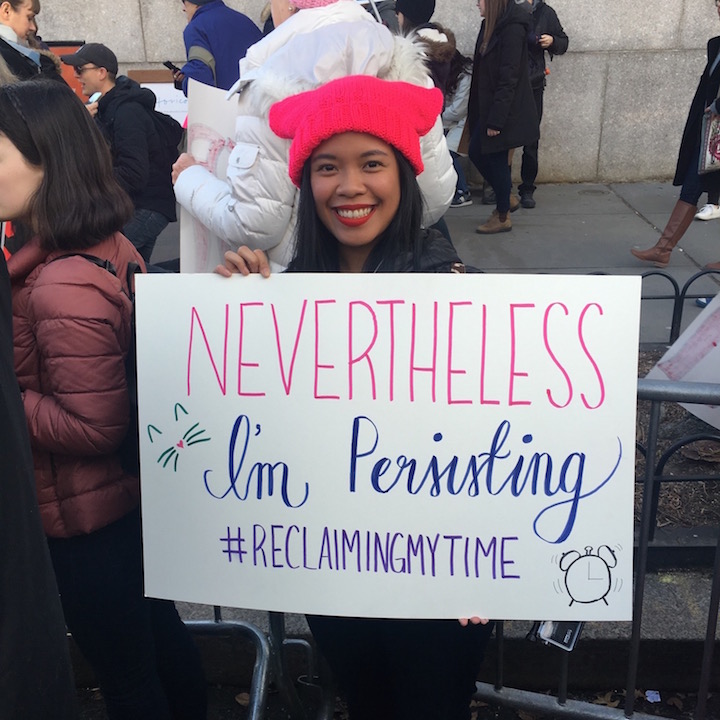 NEVERTHELESS
I'm Persisting
#RECLAIMINGMYTIME